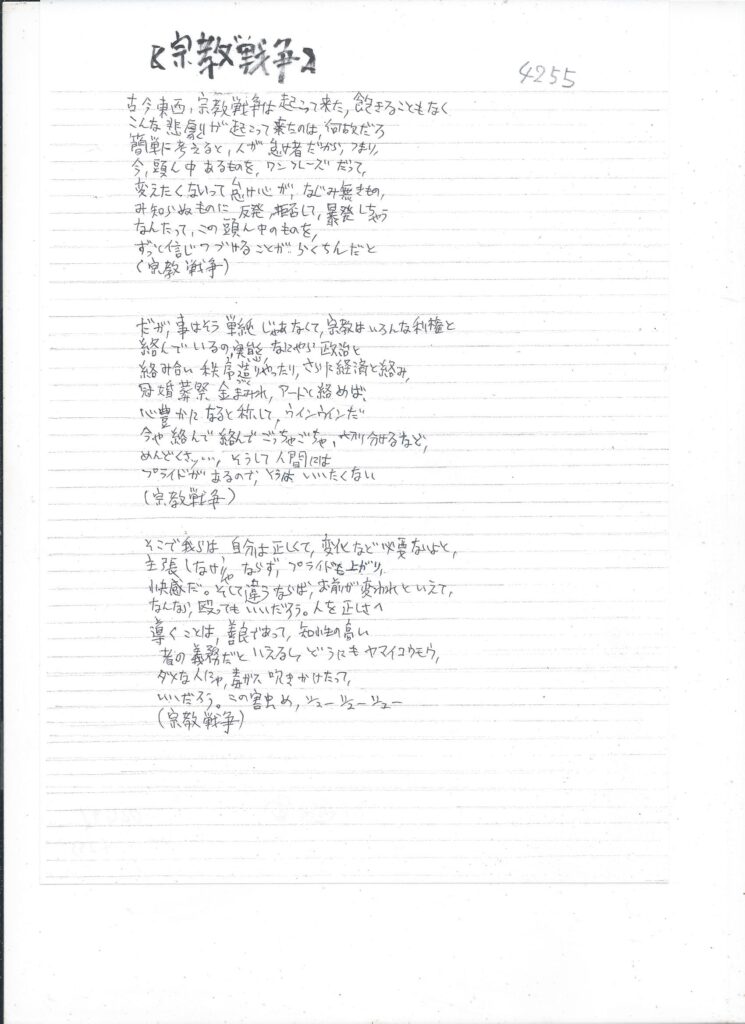 〖宗教戦争〗
4255
古今東西、宗教戦争は起こって来た、飽きることもなく
こんな悲劇が起こって来たのは、何故だろ
簡単に考えると、人が怠け者だから、つまり、
今、頭ん中あるものを、ワンフレーズだって、
変えたくないって怠け心が、なじみ無きもの、
み知らぬものに反発、拒否して、暴発しちゃう
なんたって、この頭ん中のものを、
ずっと信じつづけることが らくちんだと
(宗教戦争)
だが、事はそう単純じゃあなくて、宗教はいろんな利権と
絡んでいるの、実態 なにやら政治と
絡み合い 秩序造りやったり、さらに経済と絡み、
冠婚葬祭 金まみれ、アートと絡めば、
心豊かになると称して、ウインウインだ
今や絡んで絡んでごっちゃごちゃ、切り分けるなど、
めんどくさッい、そうして人間には
プライドがあるので、とうは いいたくない
(宗教戦争)
そこで我らは 自分は正しくて、変化など必要ないよと、
主張しなけりゃ ならず、プライドも上がり、
快感だ。そして違うならば、お前が変われといえて、
なんなら、殴ってもいいだろう。人を正しさへ
導くことは、善良であって、知性の高い
者の義務だと いえるし、どうにも ヤマイコウモウ、
ダメな人にゃ、毒ガス 吹きかけたって、
いいだろう。この害虫め、シュー シュー シュー
(宗教戦争)